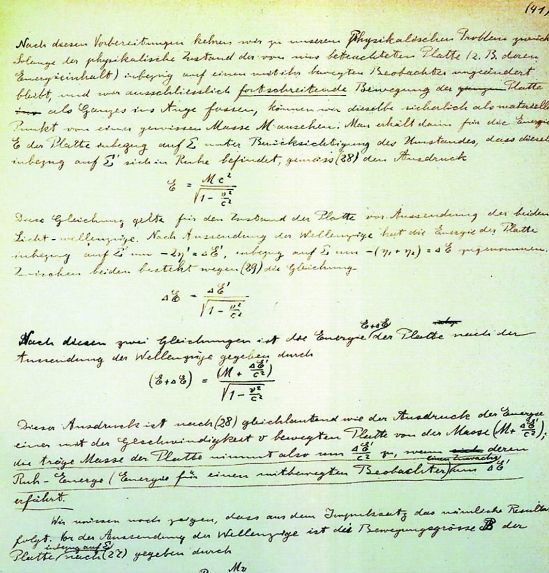 (41)
Nach diesen Vorbereitungen kehren wir zu unserem Physikalischen Problem zurück
Solange der physikalische Zustand der von uns betrachteten Platte (z. B. deren
Energieinhalt) inbezug auf einen mit ihr bewegten Beobachter ungeändert
bleibt, und wir ausschliesslich fortschreitende Bewegung der ganzen Platte
als Ganzes ins Auge fassen, können wir dieselbe sicherlich als materiellen
Punkt von einer gewissen Masse M ansehen. Man erhält dann für die Energie
E der Platte inbezug auf Σ unter Berücksichtigung des Umstandes, dass dieselbe
inbezug auf Σ' sich in Ruhe befindet, gemäss (28) den Ausdruck
E = Mc² / √(1 - v²/c²)
Diese Gleichung gelte für den Zustand der Platte vor Aussendung der beiden
Licht-wellenzüge. Nach Aussendung der Wellenzüge hat die Energie der Platte
inbezug auf Σ' um -2η' = ΔE', inbezug auf Σ um -(η₁ + η₂) = ΔE zugenommen.
Zwischen beiden besteht wegen (29) die Gleichung
ΔE = ΔE' / √(1 - v²/c²)
Nach diesen zwei Gleichungen ist die Energie E+ΔE der Platte nach der
Aussendung der Wellenzüge gegeben durch
(E+ΔE) = (M + ΔE'/c²) / √(1 - v²/c²)
Dieser Ausdruck ist nach (28) gleichlautend wie der Ausdruck der Energie
einer mit der Geschwindigkeit v bewegten Platte von der Masse (M + ΔE'/c²);
die träge Masse der Platte nimmt also um ΔE'/c² zu, wenn deren
Ruh-Energie (Energie für einen mitbewegten Beobachter) einen Zuwachs um ΔE'
erfährt.
Wir müssen noch zeigen, dass aus dem Impulssatz das nämliche Resultat
folgt. Vor der Aussendung der Wellenzüge ist die Bewegungsgrösse B der
Platte inbezug auf Σ nach (27) gegeben durch
Mv